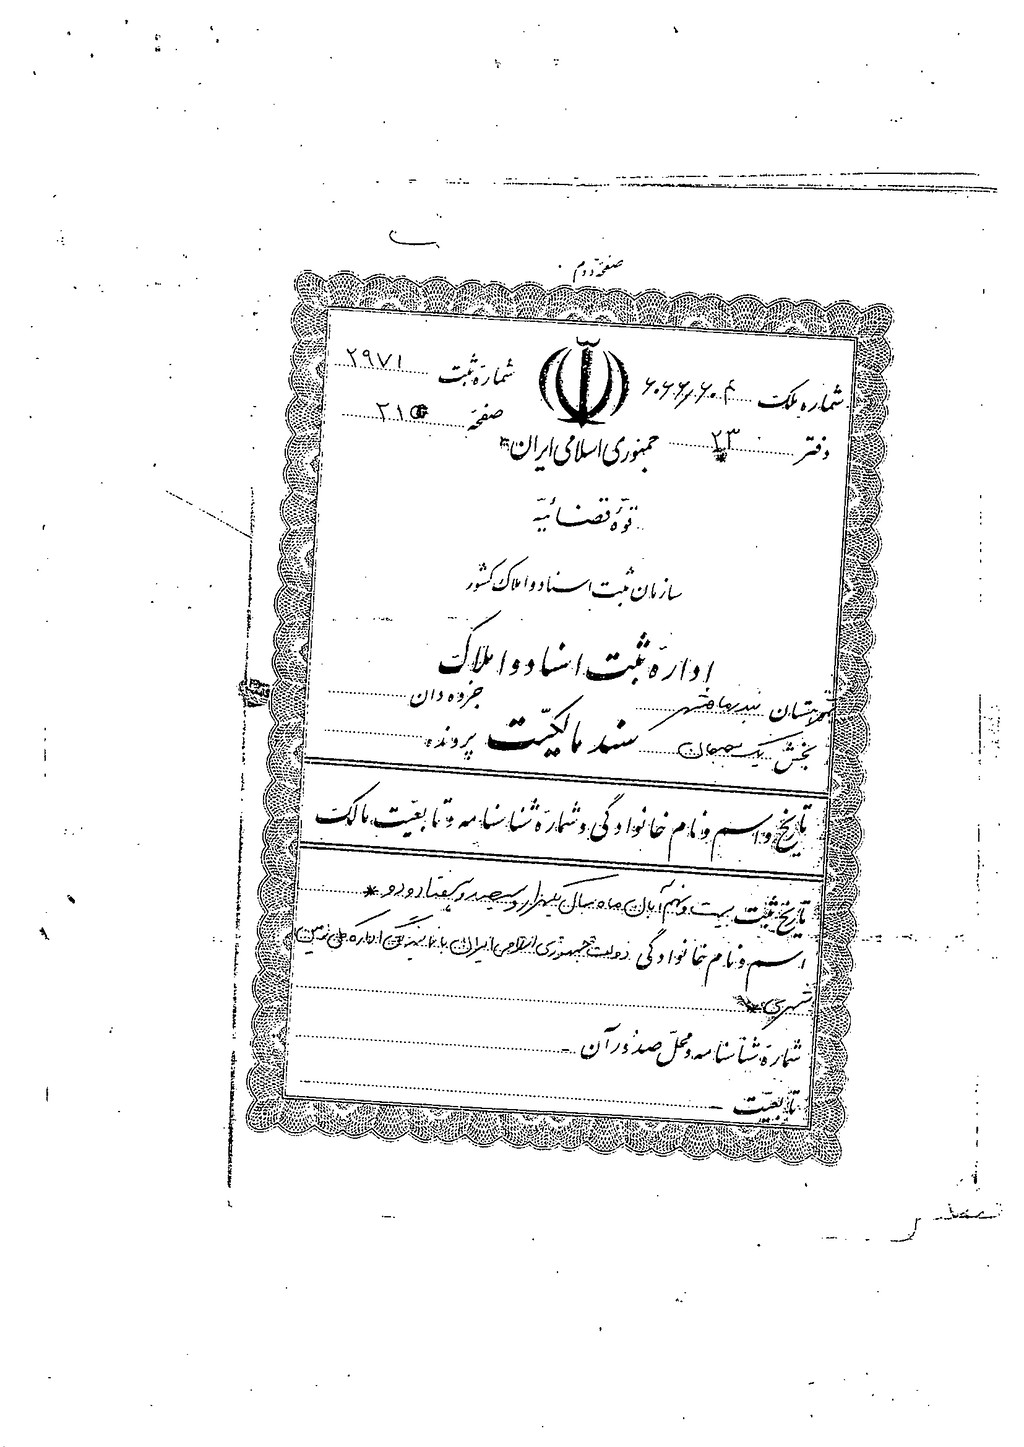 صفحه دوم
شماره ملک ۶۰۶۶/۶۰۴ شماره ثبت ۲۹۷۱
دفتر ۲۳ صفحه ۲۱
جمهوری اسلامی ایران
قوه قضائیه
سازمان ثبت اسناد و املاک کشور
اداره ثبت اسناد و املاک
شهرستان بندرماهشهر جزوه دان
بخش یک سند مالکیت پرونده
تاریخ و اسم و نام خانوادگی و شماره شناسنامه و تابعیت مالک
تاریخ ثبت بیست و نهم آبان ماه سال یکهزار و سیصد و هفتاد و دو *
اسم و نام خانوادگی دولت جمهوری اسلامی ایران با نمایندگی اداره کل زمین
شهری
شماره شناسنامه و محل صدور آن -
تابعیت -